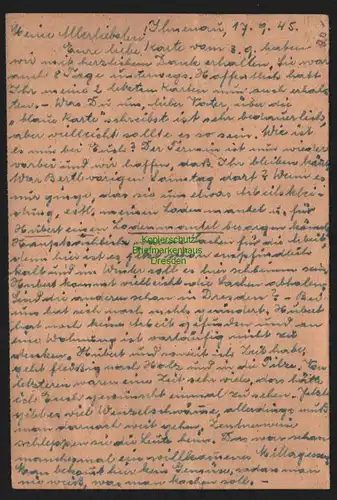 Meine Allerliebsten, Ilmenau, 17.9.45.
Eure liebe Karte vom 3.9. haben
wir mit herzlichem Dank erhalten, sie war
auch 8 Tage unterwegs. Hoffentlich habt
Ihr meine 2 letzten Karten nun auch erhal-
ten. – Was Du uns, lieber Vater, über die
"blaue Karte" schreibst ist sehr bedauerlich,
aber vielleicht sollte es so sein. Wie ist
es nun bei Euch? Der Termin ist nun wieder
vorbei und wir hoffen, daß Ihr bleiben könnt.
War Bertl vorigen Samstag dort? Wenn es
nur ginge, daß sie uns etwas Arbeitsklei-
dung, evtl. meinen Lodenmantel u. für
Hubert einen Lodenmantel besorgen könnte.
Hauptsächlich Sachen für die Arbeit
denn hier ist es empfindlich
kalt und im Winter soll es hier schlimm sein.
Hubert kommt vielleicht die Sachen abholen.
Sind die anderen schon in Dresden? – Bei
uns hat sich noch nichts verändert. Hubert
hat noch keine Arbeit gefunden und an
eine Wohnung ist vorläufig nicht zu
denken. Hubert und soweit ich Zeit habe,
geht fleißig nach Holz und in die Pilze. Von
letzteren waren eine Zeit sehr viele, das hätte
ich Euch gewünscht einmal zu sehen. Jetzt
gibt es viel allerdings muß
man darnach weit gehen. Zentnerweise
schleppen sie die Leute heim. Das war schon
manchmal ein willkommenes Mittagessen.
Man bekommt hier kein Gemüse, sodas man
nie weiß, was man kochen soll. –
Kopierschutz
Briefmarkenhaus
Dresden